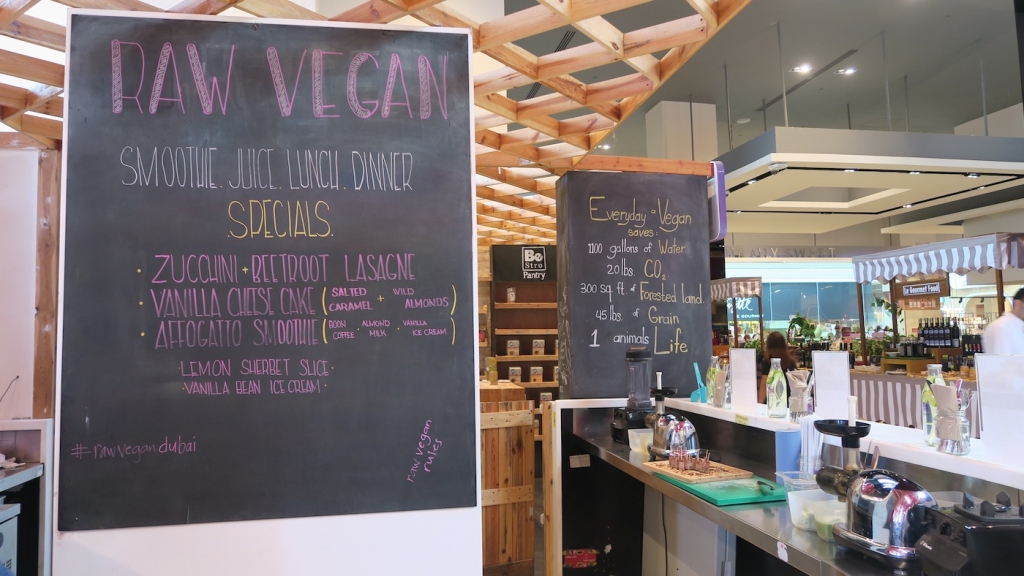 RAW VEGAN
SMOOTHIE. JUICE. LUNCH. DINNER
SPECIALS.
· ZUCCHINI + BEETROOT LASAGNE
· VANILLA CHEESE CAKE (SALTED CARAMEL + WILD ALMONDS)
· AFFOGATTO SMOOTHIE (BOON COFFEE · ALMOND MILK · VANILLA ICE CREAM)
· LEMON SHERBET SLICE ·
· VANILLA BEAN ICE CREAM ·
#rawvegandubai
raw vegan
rules
Everyday a Vegan
saves:
1100 gallons of Water
20 lbs. CO2
300 sq. ft. of Forested land.
45 lbs. of Grain
1 animals Life
Be
Stro
Pantry